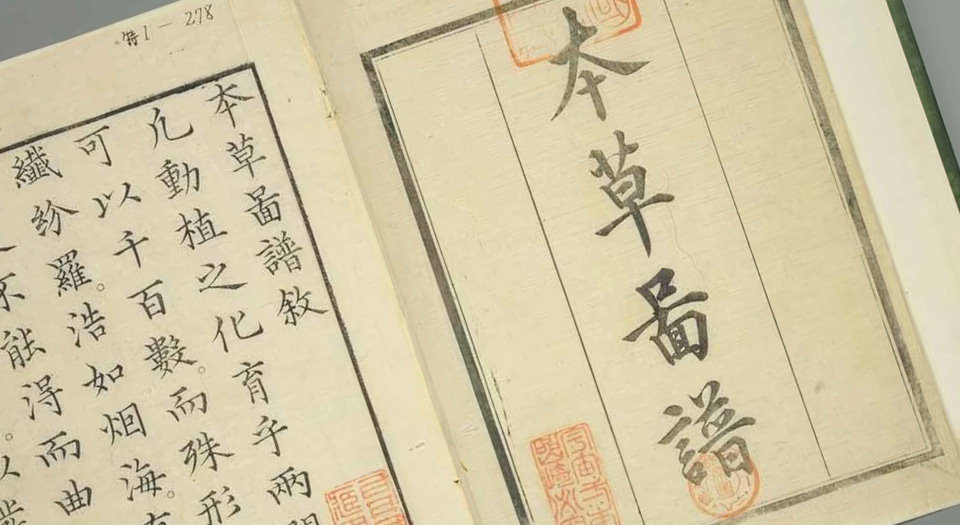 特1-278
本草啚譜
本草啚譜敘
凢動植之化育乎兩
可以千百數。而殊形
纖紛羅。浩如烟海。
不能得而曲